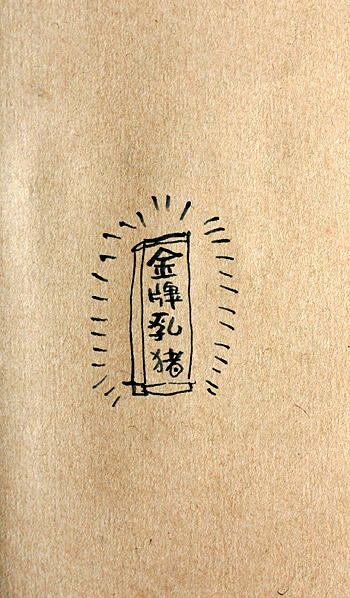 金牌乳猪